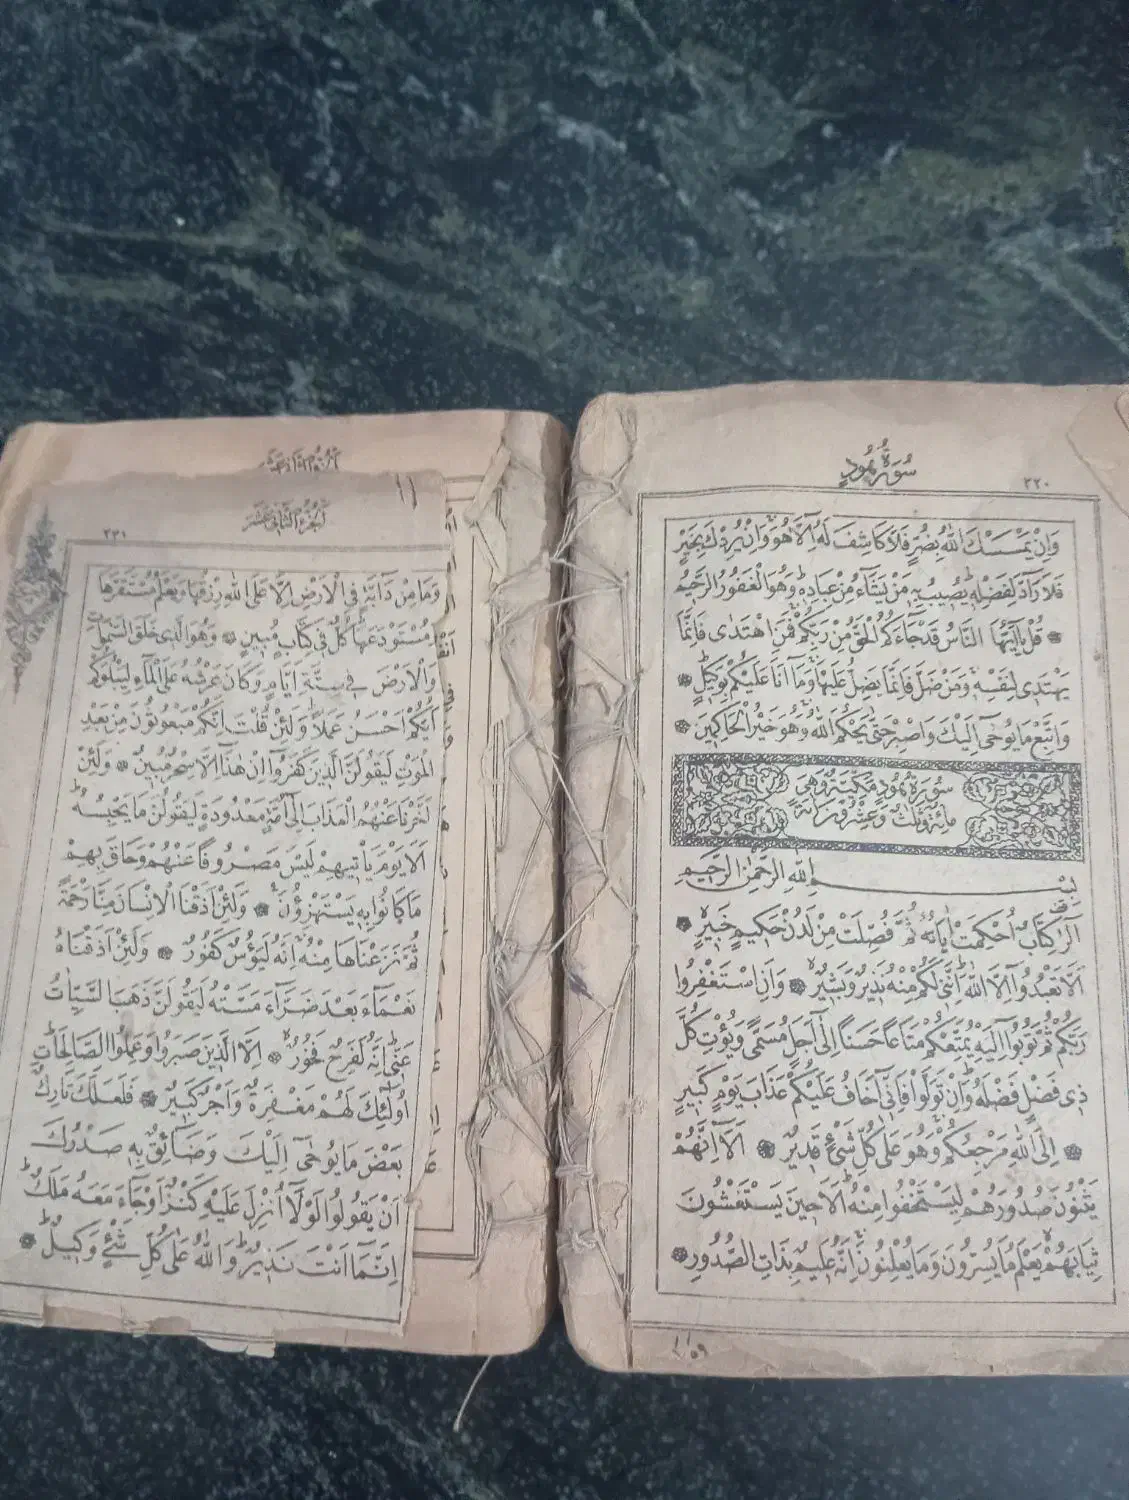 سُورَةُ هُودٍ
٢٢٠
وَاِنْ يَمْسَسْكَ اللّٰهُ بِضُرٍّ فَلَا كَاشِفَ لَهُٓ اِلَّا هُوَ وَاِنْ يُرِدْكَ بِخَيْرٍ
فَلَا رَآدَّ لِفَضْلِهٖ يُصِيبُ بِهٖ مَنْ يَشَآءُ مِنْ عِبَادِهٖ وَهُوَ الْغَفُورُ الرَّحِيمُ
قُلْ يَآ اَيُّهَا النَّاسُ قَدْ جَآءَكُمُ الْحَقُّ مِنْ رَبِّكُمْ فَمَنِ اهْتَدٰى فَاِنَّمَا
يَهْتَدٖى لِنَفْسِهٖ وَمَنْ ضَلَّ فَاِنَّمَا يَضِلُّ عَلَيْهَا وَمَآ اَنَا۬ عَلَيْكُمْ بِوَكِيلٍ
وَاتَّبِعْ مَا يُوحٰٓى اِلَيْكَ وَاصْبِرْ حَتّٰى يَحْكُمَ اللّٰهُ وَهُوَ خَيْرُ الْحَاكِمِينَ
سُورَةُ هُودٍ مَكِّيَّةٌ وَهِيَ
مِائَةٌ وَثَلٰثٌ وَعِشْرُونَ اٰيَةً
بِسْمِ اللّٰهِ الرَّحْمٰنِ الرَّحِيمِ
الٓرٰ كِتَابٌ اُحْكِمَتْ اٰيَاتُهُ ثُمَّ فُصِّلَتْ مِنْ لَدُنْ حَكِيمٍ خَبِيرٍ
اَلَّا تَعْبُدُوٓا اِلَّا اللّٰهَ اِنَّنٖى لَكُمْ مِنْهُ نَذِيرٌ وَبَشِيرٌ وَاَنِ اسْتَغْفِرُوا
رَبَّكُمْ ثُمَّ تُوبُوٓا اِلَيْهِ يُمَتِّعْكُمْ مَتَاعًا حَسَنًا اِلٰٓى اَجَلٍ مُسَمًّى وَيُؤْتِ كُلَّ
ذٖى فَضْلٍ فَضْلَهُ وَاِنْ تَوَلَّوْا فَاِنّٖٓى اَخَافُ عَلَيْكُمْ عَذَابَ يَوْمٍ كَبِيرٍ
اِلَى اللّٰهِ مَرْجِعُكُمْ وَهُوَ عَلٰى كُلِّ شَىْءٍ قَدِيرٌ اَلَآ اِنَّهُمْ
يَثْنُونَ صُدُورَهُمْ لِيَسْتَخْفُوا مِنْهُ اَلَا حِينَ يَسْتَغْشُونَ
ثِيَابَهُمْ يَعْلَمُ مَا يُسِرُّونَ وَمَا يُعْلِنُونَ اِنَّهُ عَلِيمٌ بِذَاتِ الصُّدُورِ
اَلْجُزْءُ الثَّانِىَ عَشَرَ
٢٢١
وَمَا مِنْ دَآبَّةٍ فِى الْاَرْضِ اِلَّا عَلَى اللّٰهِ رِزْقُهَا وَيَعْلَمُ مُسْتَقَرَّهَا
وَمُسْتَوْدَعَهَا كُلٌّ فٖى كِتَابٍ مُبِينٍ وَهُوَ الَّذٖى خَلَقَ السَّمٰوَاتِ
وَالْاَرْضَ فٖى سِتَّةِ اَيَّامٍ وَكَانَ عَرْشُهُ عَلَى الْمَآءِ لِيَبْلُوَكُمْ
اَيُّكُمْ اَحْسَنُ عَمَلًا وَلَئِنْ قُلْتَ اِنَّكُمْ مَبْعُوثُونَ مِنْ بَعْدِ
الْمَوْتِ لَيَقُولَنَّ الَّذِينَ كَفَرُوٓا اِنْ هٰذَآ اِلَّا سِحْرٌ مُبِينٌ وَلَئِنْ
اَخَّرْنَا عَنْهُمُ الْعَذَابَ اِلٰٓى اُمَّةٍ مَعْدُودَةٍ لَيَقُولُنَّ مَا يَحْبِسُهُ
اَلَا يَوْمَ يَاْتِيهِمْ لَيْسَ مَصْرُوفًا عَنْهُمْ وَحَاقَ بِهِمْ
مَا كَانُوا بِهٖ يَسْتَهْزِؤُنَ وَلَئِنْ اَذَقْنَا الْاِنْسَانَ مِنَّا رَحْمَةً
ثُمَّ نَزَعْنَاهَا مِنْهُ اِنَّهُ لَيَؤُسٌ كَفُورٌ وَلَئِنْ اَذَقْنَاهُ
نَعْمَآءَ بَعْدَ ضَرَّآءَ مَسَّتْهُ لَيَقُولَنَّ ذَهَبَ السَّيِّاٰتُ
عَنّٖى اِنَّهُ لَفَرِحٌ فَخُورٌ اِلَّا الَّذِينَ صَبَرُوا وَعَمِلُوا الصَّالِحَاتِ
اُولٰٓئِكَ لَهُمْ مَغْفِرَةٌ وَاَجْرٌ كَبِيرٌ فَلَعَلَّكَ تَارِكٌ
بَعْضَ مَا يُوحٰٓى اِلَيْكَ وَضَآئِقٌ بِهٖ صَدْرُكَ
اَنْ يَقُولُوا لَوْلَآ اُنْزِلَ عَلَيْهِ كَنْزٌ اَوْ جَآءَ مَعَهُ مَلَكٌ
اِنَّمَآ اَنْتَ نَذِيرٌ وَاللّٰهُ عَلٰى كُلِّ شَىْءٍ وَكِيلٌ